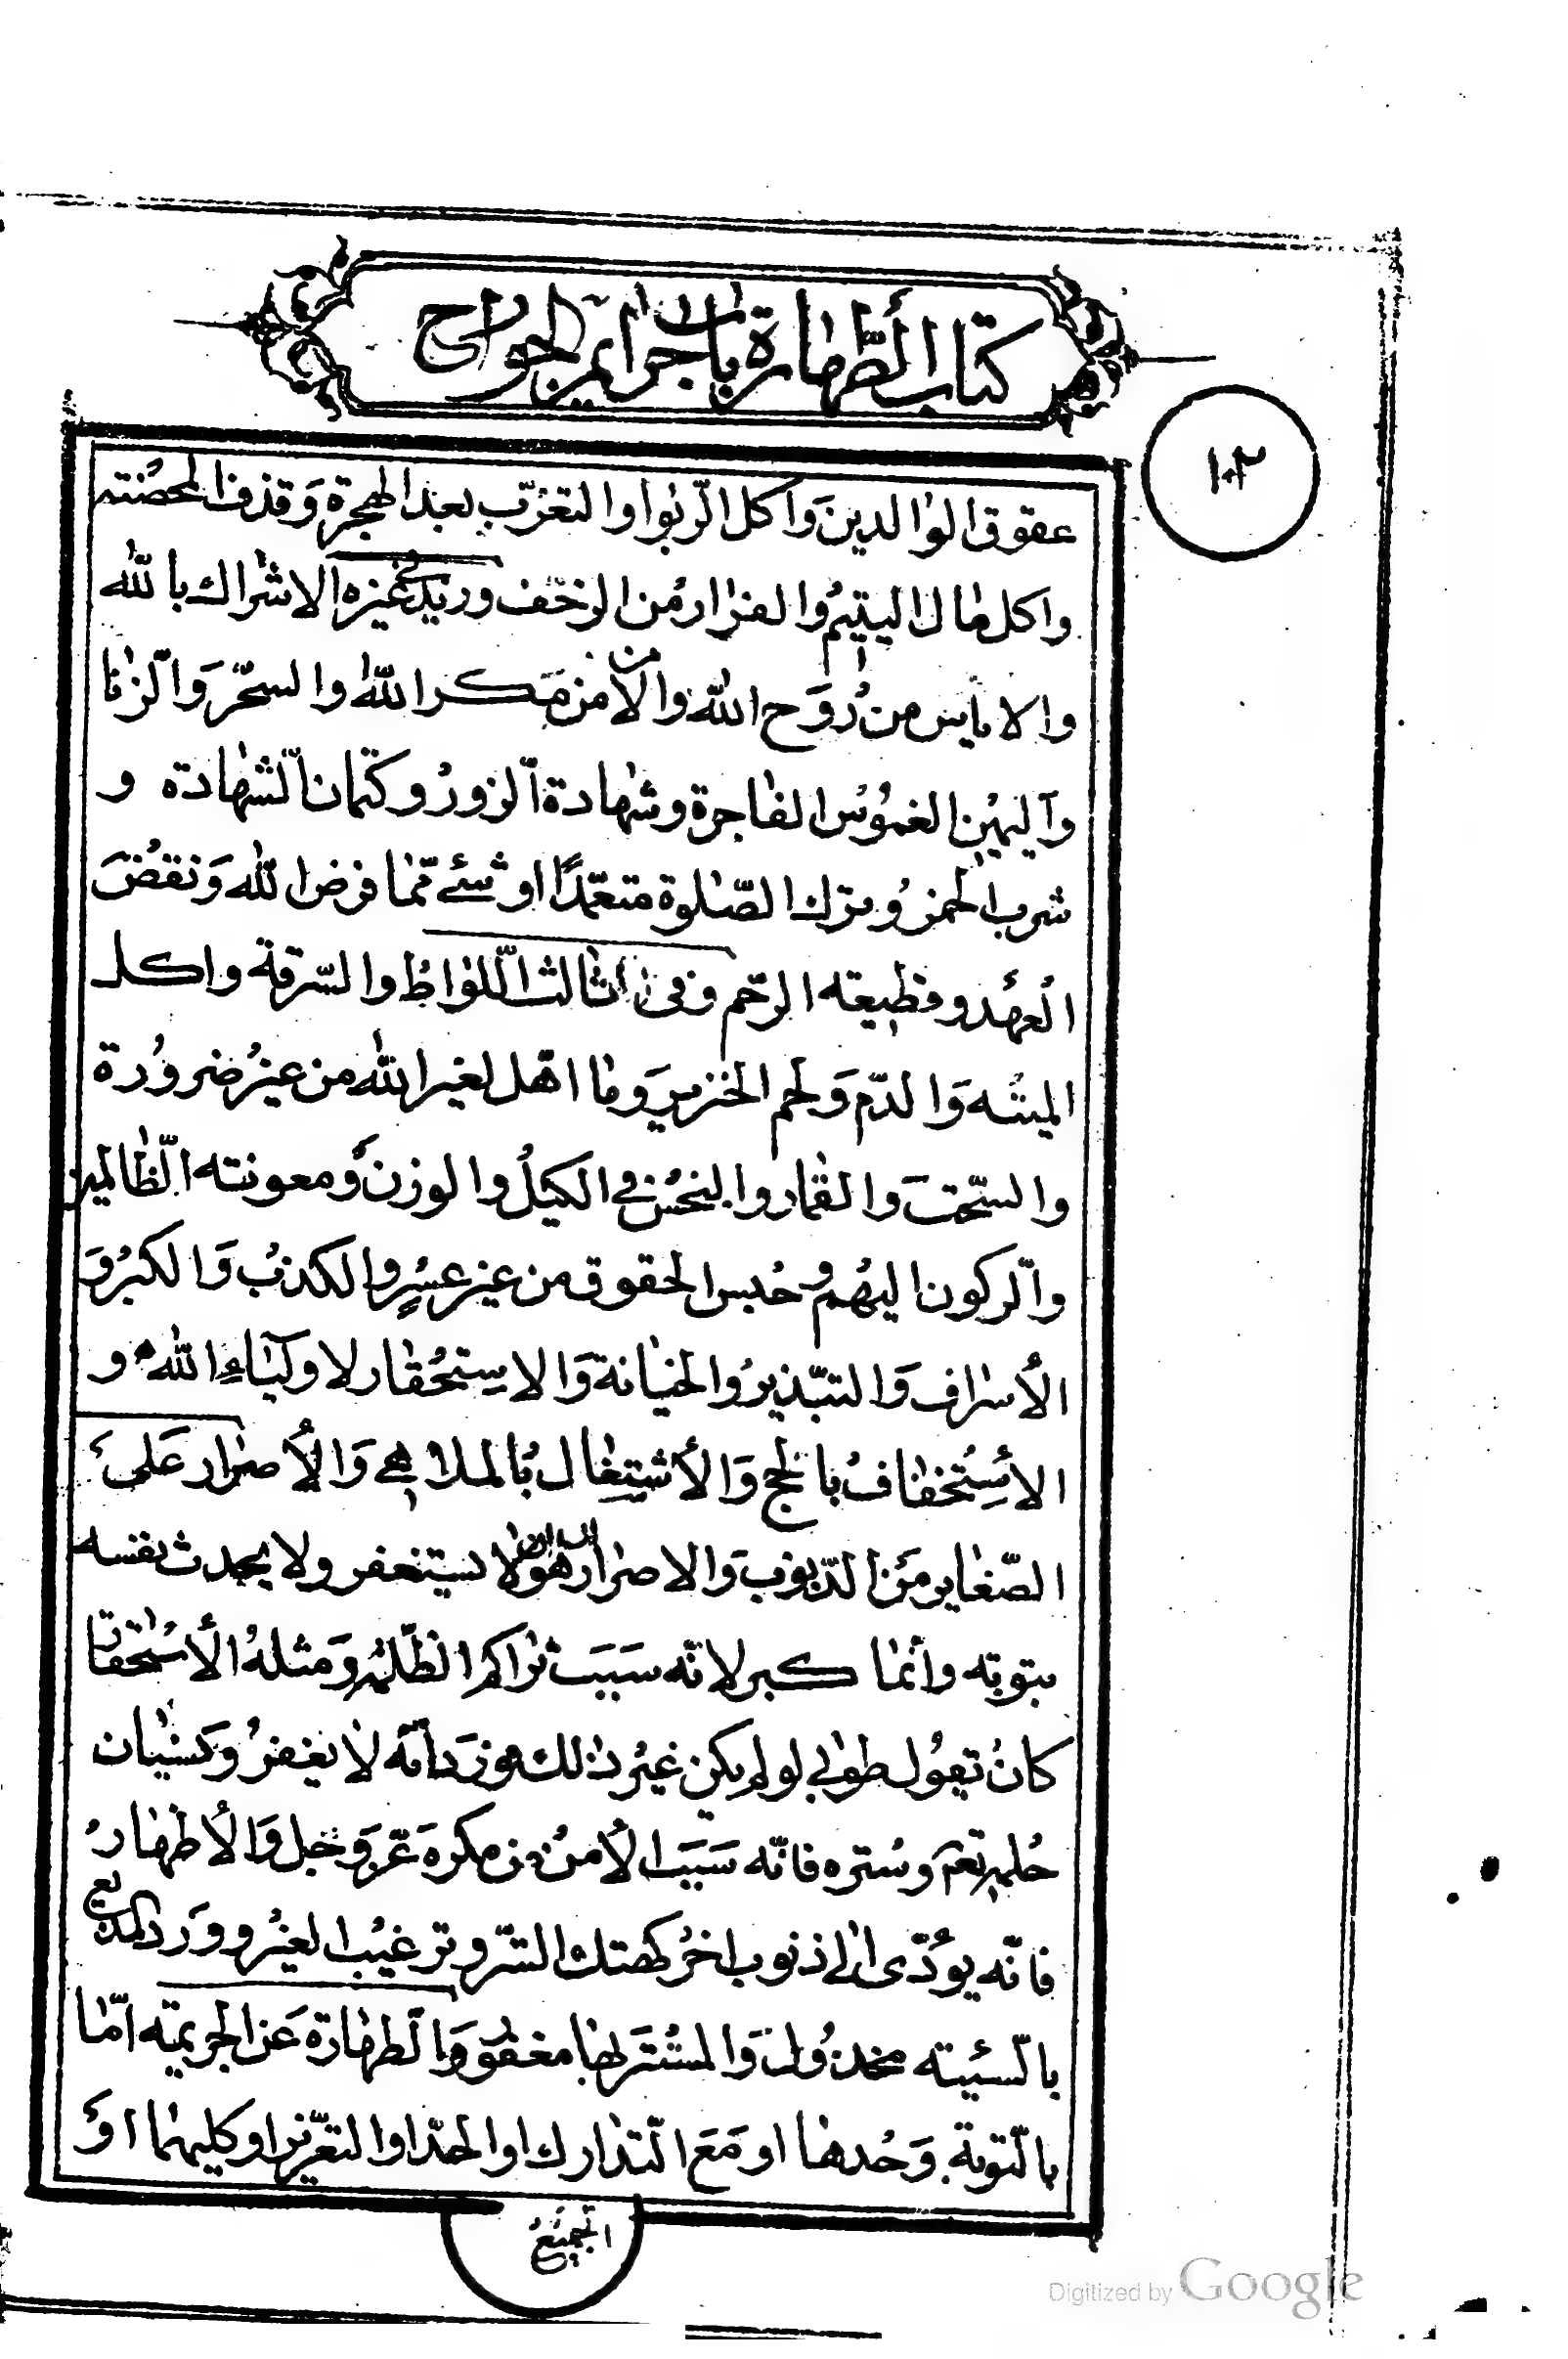 كتاب الطهارة باب جرايم الجوارح
١٠٢
عقوق الوالدين واكل الربوا والتعرب بعد الهجرة وقذف المحصنته
واكل مال اليتيم والفرار من الزحف وزيد في غيره الاشراك بالله
والاياس من روح الله والامن من مكر الله والسحر والزنا
واليمين الغموس الفاجرة وشهادة الزور وكتمان الشهادة و
شرب الخمر وترك الصلوة متعمدا او شئ مما فرض الله ونقض
العهد وقطيعه الرحم وفي ثالث اللواط والسرقة واكل
الميته والدم ولحم الخنزير وما اهل لغير الله من غير ضرورة
والسحت والقمار والبخس في الكيل والوزن ومعونته الظالمين
والركون اليهم وحبس الحقوق من غير عسر والكذب والكبر و
الاسراف والتبذير والخيانة والاستحقار لاولياء الله و
الاستخفاف بالحج والاشتغال بالملاهي والاصرار على
الصغاير من الذنوب والاصرار هو ان لا يستغفر ولا يحدث نفسه
بتوبته وانما كبر لانه سبب تراكم الظلم ومثله الاستحقا
كان تقول طوبى لو لم يكن غير ذلك فورد انه لا يغفر ونسيان
حلمه تعم وستره فانه سبب الامن من مكره عز وجل والاظهار
فانه يؤدى الى ذنوب اخر كهتك الستر وترغيب الغير وورد المذيع
بالسئيته مخذول والمستتر بها مغفور والطهارة عن الجريمته اما
بالتوبة وحدها او مع التدارك او الحد او التعزير او كليهما او
الجميع
Digitized by Google